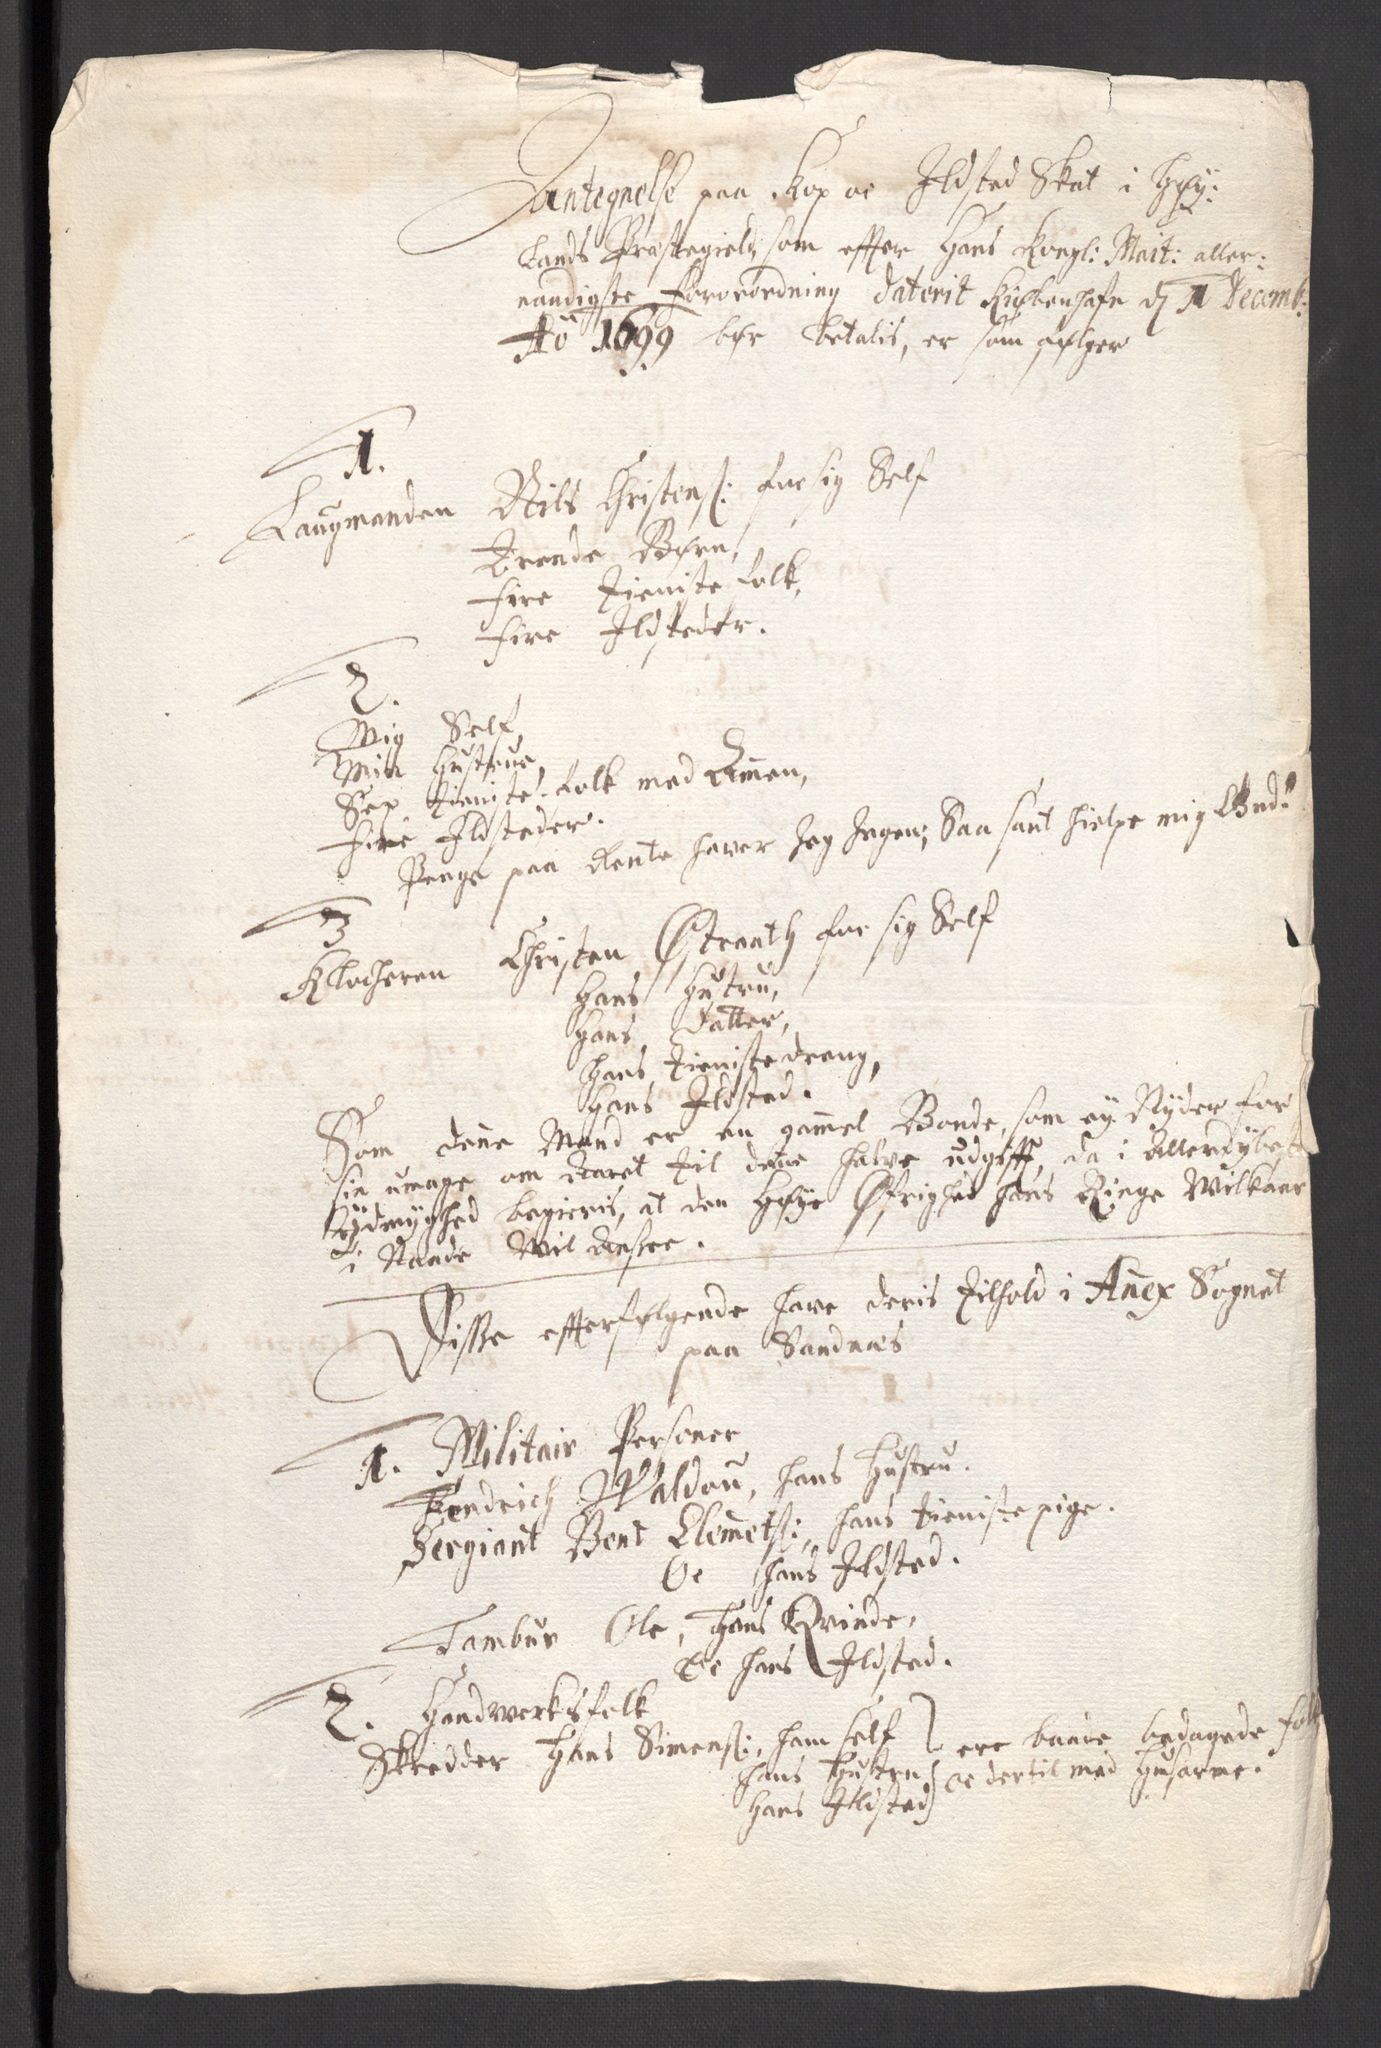 Antegnelse paa Kop oc Ildsted Skat i Høy:
Lands Præstegield, som effter Hans Kongl: Mait: aller:
naadigste Forordning daterit Kiøbenhafn d 1 Decemb:
Aõ 1699 bør betalis, er som følger
1.
Laugmanden Nils Christens: for sig Self
Trende Børn,
Fire Tieniste folk,
Fire Ildsteder.
2.
Mig Self,
Min Hustrue,
Sex Tieniste folk med Amen,
Fire Ildsteder.
Penge paa Rente hafver Jeg Ingen, Saa sant hielpe mig Gud.
3
Klocheren Christen Østraath for sig Self
Hans Hustru,
Hans Datter,
Hans Tienistedreng,
Hans Ildsted.
Som dene Mand er en gamel Bonde, som ey Nyder for
sin umage om Aaret til dene halve udgifft, da i Allerdybest
Ydmyghed begieris, at den Høye Øfrighed hans Ringe Wilkaar
i Naade Wil ansee.
Disse effterfølgende have deris Tilhold i Añex Sognet
paa Sandnæs
1. Militair Personer
Fendrich Waldou, hans Hustru.
Sergiant Bent Clemets:, hans tieniste pige.
Oc hans Ildsted.
Tambur Ole, Hans Qvinde,
Oc hans Ildsted.
2. Handwerksfolk
Skredder Hans Simens:, ham self ere baade bedagede folk
hans Hustru oc dertil med Husarme.
hans Ildsted